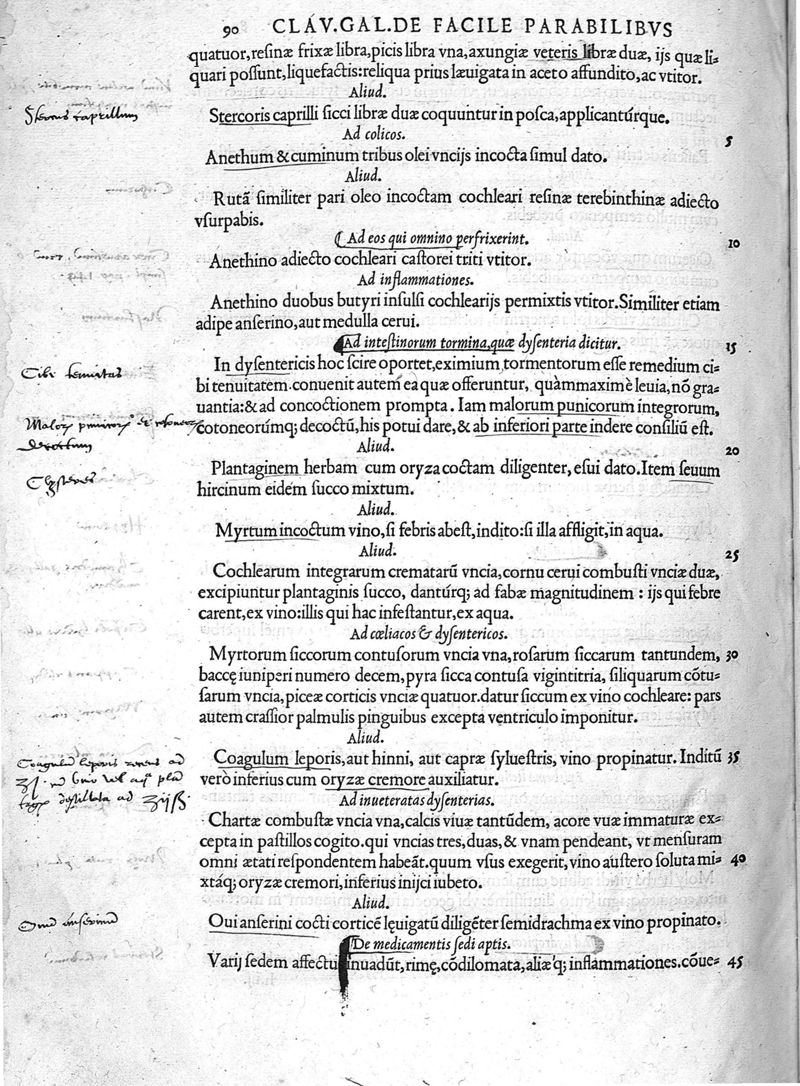 90 CLAV.GAL.DE FACILE PARABILIBVS
quatuor,resinæ frixæ libra,picis libra vna,axungiæ veteris libræ duæ, ijs quæ li-
quari possunt,liquefactis:reliqua prius læuigata in aceto affundito,ac vtitor.
Aliud.
Stercus caprillum
Stercoris caprilli sicci libræ duæ coquuntur in posca,applicantúrque.
Ad colicos. 5
Anethum & cuminum tribus olei vncijs incocta simul dato.
Aliud.
Rutã similiter pari oleo incoctam cochleari resinæ terebinthinæ adiecto
vsurpabis.
Ad eos qui omnino perfrixerint. 10
Anethino adiecto cochleari castorei triti vtitor.
Ad inflammationes.
Anethino duobus butyri insulsi cochlearijs permixtis vtitor.Similiter etiam
adipe anserino,aut medulla cerui.
Ad intestinorum tormina,quæ dysenteria dicitur. 15
Cibi tenuitas
In dysentericis hoc scire oportet,eximium,tormentorum esse remedium ci-
bi tenuitatem.conuenit autem ea quæ offeruntur, quàmmaximè leuia,nõ gra-
uantia:& ad concoctionem prompta. Iam malorum punicorum integrorum,
cotoneorúmq; decoctũ,his potui dare,& ab inferiori parte indere consiliũ est.
decoctum
Aliud. 20
Clysteres
Plantaginem herbam cum oryza coctam diligenter,esui dato.Item seuum
hircinum eidem succo mixtum.
Aliud.
Myrtum incoctum vino,si febris abest,indito:si illa affligit,in aqua.
Aliud. 25
Cochlearum integrarum crematarũ vncia,cornu cerui combusti vnciæ duæ,
excipiuntur plantaginis succo, dantúrq; ad fabæ magnitudinem : ijs qui febre
carent,ex vino:illis qui hac infestantur,ex aqua.
Ad cœliacos & dysentericos.
Myrtorum siccorum contusorum vncia vna,rosarum siccarum tantundem, 30
baccę iuniperi numero decem,pyra sicca contusa vigintitria, siliquarum cõtu-
sarum vncia,piceæ corticis vnciæ quatuor.datur siccum ex vino cochleare: pars
autem crassior palmulis pinguibus excepta ventriculo imponitur.
Aliud.
Coagulum leporis,aut hinni, aut capræ syluestris, vino propinatur. Inditũ 35
verò inferius cum oryzæ cremore auxiliatur.
Ad inueteratas dysenterias.
Chartæ combustæ vncia vna,calcis viuæ tantũdem, acore vuæ immaturæ ex-
cepta in pastillos cogito.qui vncias tres,duas,& vnam pendeant, vt mensuram
omni ætati respondentem habeãt.quum vsus exegerit,vino austero soluta mi- 40
xtáq; oryzæ cremori,inferius inijci iubeto.
Aliud.
Oui anserini cocti corticẽ lęuigatũ diligẽter semidrachma ex vino propinato.
De medicamentis sedi aptis.
Varij sedem affectus inuadũt,rimę,cõdilomata,aliæ'q; inflammationes.cõue- 45